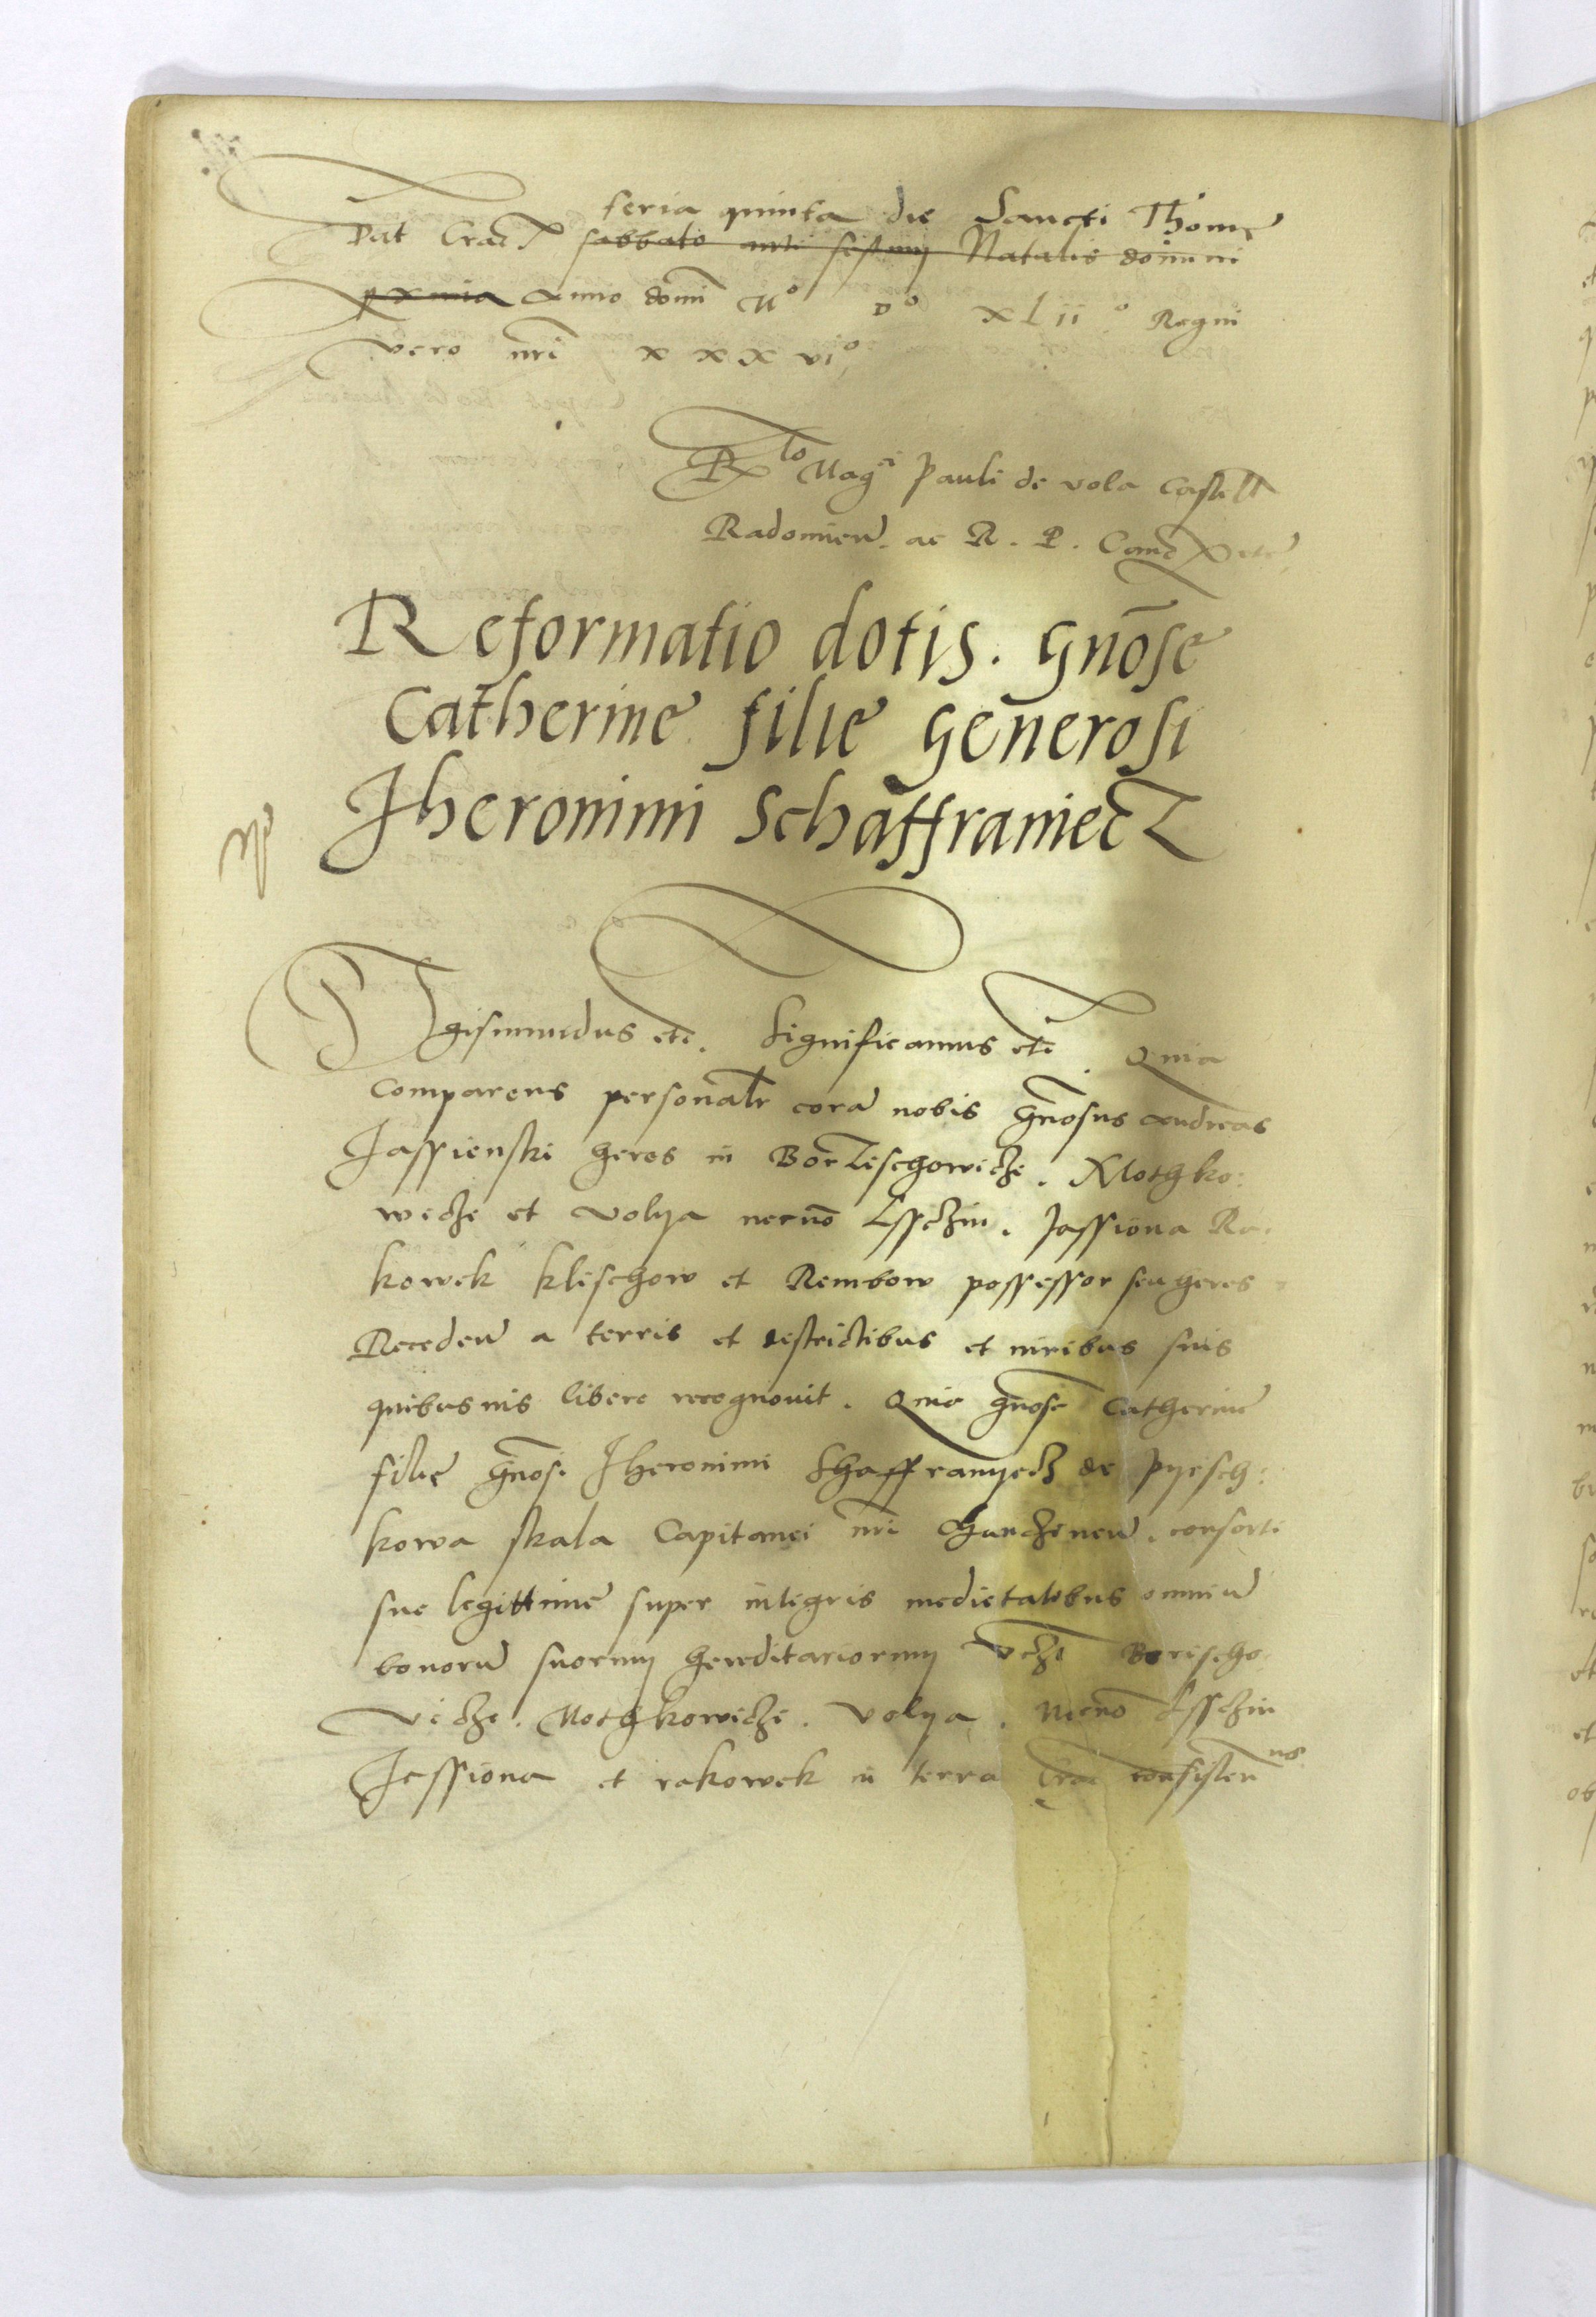 feria quinta die Sancti Thome
Dat Crac sabbato ante festum Natalis domini
pxmia anno domi Mº Dº XLIIº Regni
vero nri XXXVIº
Rlo Magci Pauli de vola Castell
Radomien. ac R. P. Canc etc
Reformatio dotis. gnose
Catherine filie generosi
Jheronimi Schaffraniecz
Sigismundus etc. Significamus etc. Quia
comparens personalr cora nobis gnosus Andreas
Jassienski heres in Borzischowicze. Mothko:
wicze et volya necno Usschin. Jassiona Ra:
kowek klischow et Rembow possessor seu heres
Receden a terris et districtibus et iuribus suis
quibusuis libere recognouit. Quia gnose Catherine
filie gnosi Jheronimi Shaffranyecz de Pyesch:
kowa skala Capitanei nri Chanczinen. consorti
sue legittime super integris medietatibus omniu
bonoru suorum hereditariorum vcze Borischo
vicze. Mothkowicze. Volya. Necno Usschin
Jassiona et rakowek in terra Crac consisten